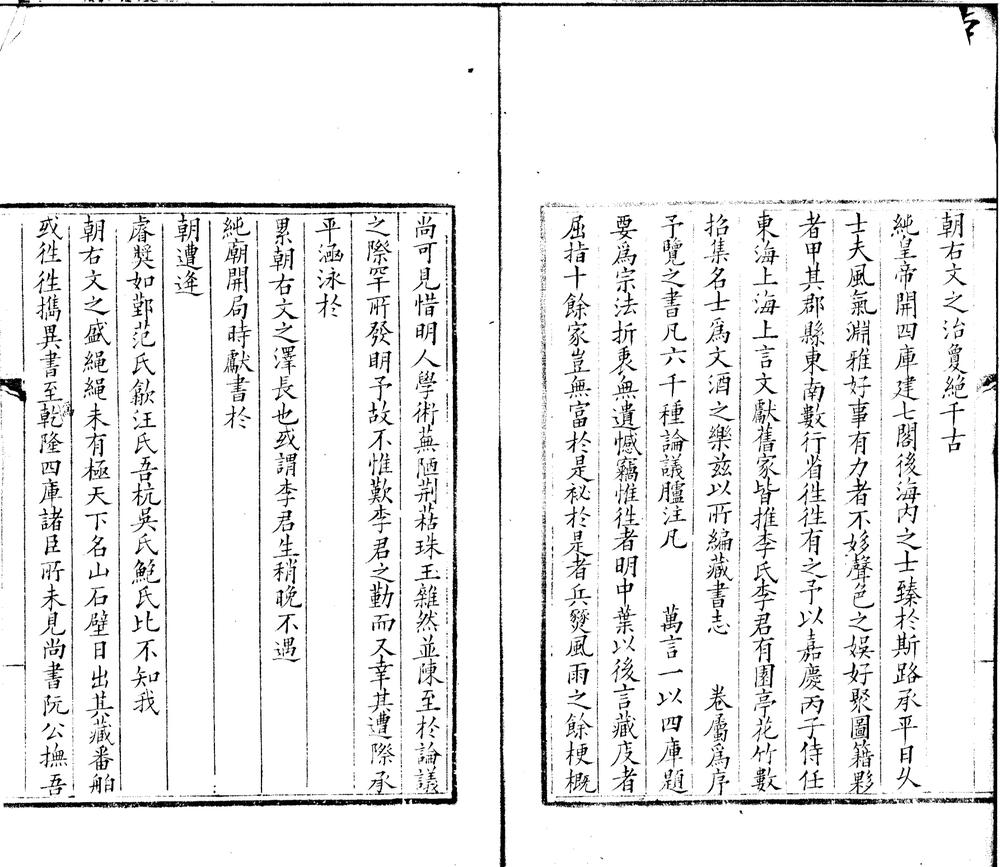 朝右文之治敻絕千古
純皇帝開四庫建七閣後海内之士臻於斯路承平日乆
士夫風氣淵雅好事有力者不姼聲色之娛好聚圖籍夥
者甲其郡縣東南數行省徃徃有之予以嘉慶丙子侍任
東海上海上言文獻舊家皆推李氏李君有園亭花竹數
招集名士爲文酒之樂兹以所編藏書志　　卷屬爲序
予覽之書凡六千種論議臚注凡　　萬言一以四庫題
要爲宗法折衷無遺憾竊惟徃者明中葉以後言藏庋者
屈指十餘家豈無富於是袐於是者兵燹風雨之餘梗概
尚可見惜明人學術蕪陋荆菭珠玉雜然並陳至於論議
之際罕所發明予故不惟歎李君之勤而又幸其遭際承
平涵泳於
累朝右文之澤長也或謂李君生稍晚不遇
純廟開局時獻書於
朝遭逄
睿獎如鄞范氏歙汪氏吾杭吳氏鮑氏比不知我
朝右文之盛繩繩未有極天下名山石壁日出其藏番舶
或徃徃擕異書至乾隆四庫諸臣所未見尚書阮公撫吾